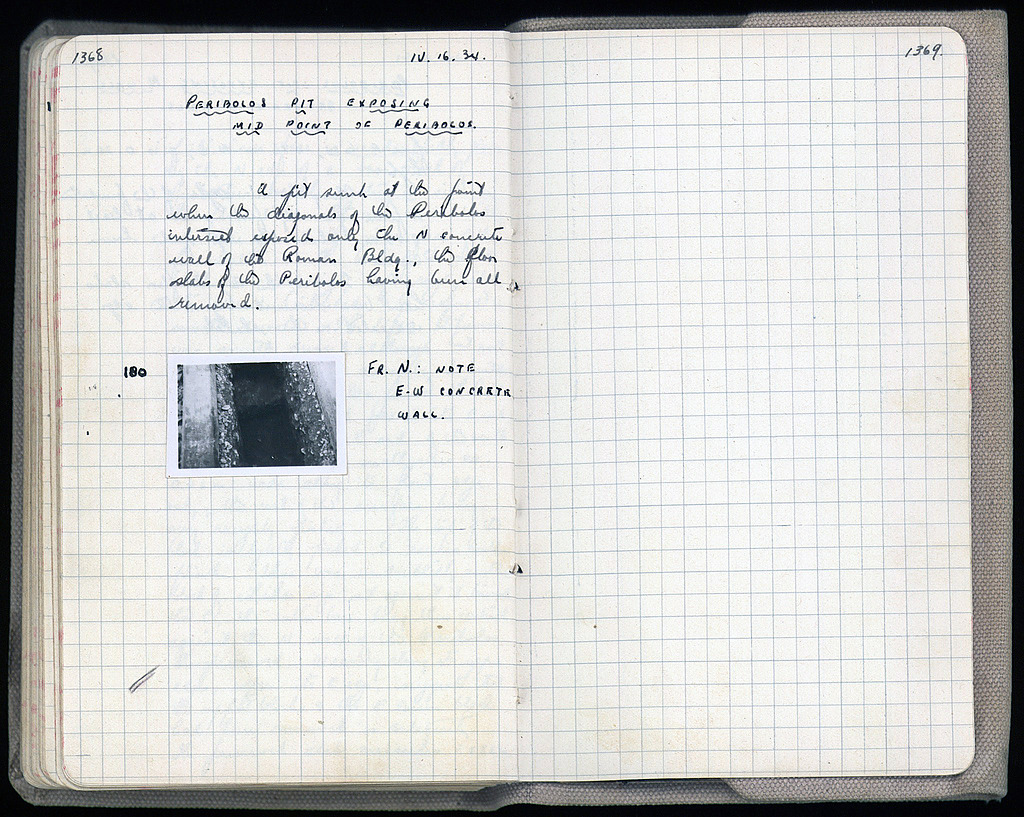 1368
IV. 16. 34.
1369.
PERIBOLOS PIT EXPOSING
MID POINT OF PERIBOLOS.
A pit sunk at the point
where the diagonals of the Peribolos
intersect exposed only the N concrete
wall of the Roman Bldg., the floor
slabs of the Peribolos having been all
removed.
180
FR. N.: NOTE
E-W CONCRETE
WALL.